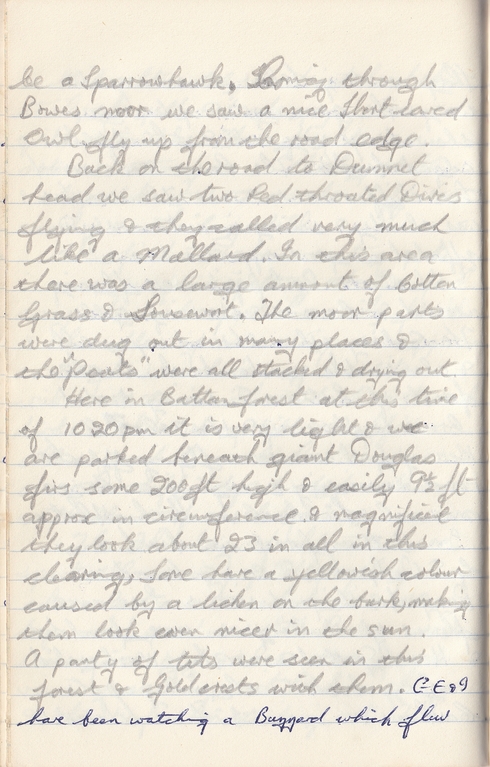 be a Sparrowhawk. Coming through
Bowes moor we saw a nice Short eared
Owl fly up from the road edge.
Back on the road to Dunnet
head we saw two Red throated Divers
flying & they called very much
like a Mallard. In this area
there was a large amount of Cotton
Grass & Lousewort. The moor parts
were dug out in many places &
the "Peats" were all stacked & drying out
Here in Battan forest at this time
of 1020pm it is very light & we
are parked beneath giant Douglas
firs some 200ft high & easily 9½ ft
approx in circumference & magnificent
they look about 23 in all in this
clearing, Some have a yellowish colour
caused by a lichen on the bark, making
them look even nicer in the sun.
A party of tits were seen in this
forest & Goldcrests with them.
have been watching a Buzzard which flew